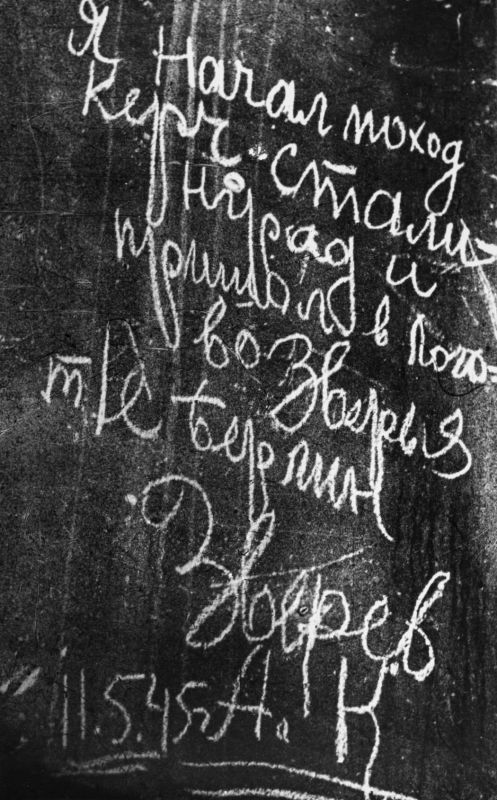 Я начал поход
Керч-Стали-
нград и
пришол в лого-
во Зверья
т. е Берлин
Зверев
11.5.45г А. К.